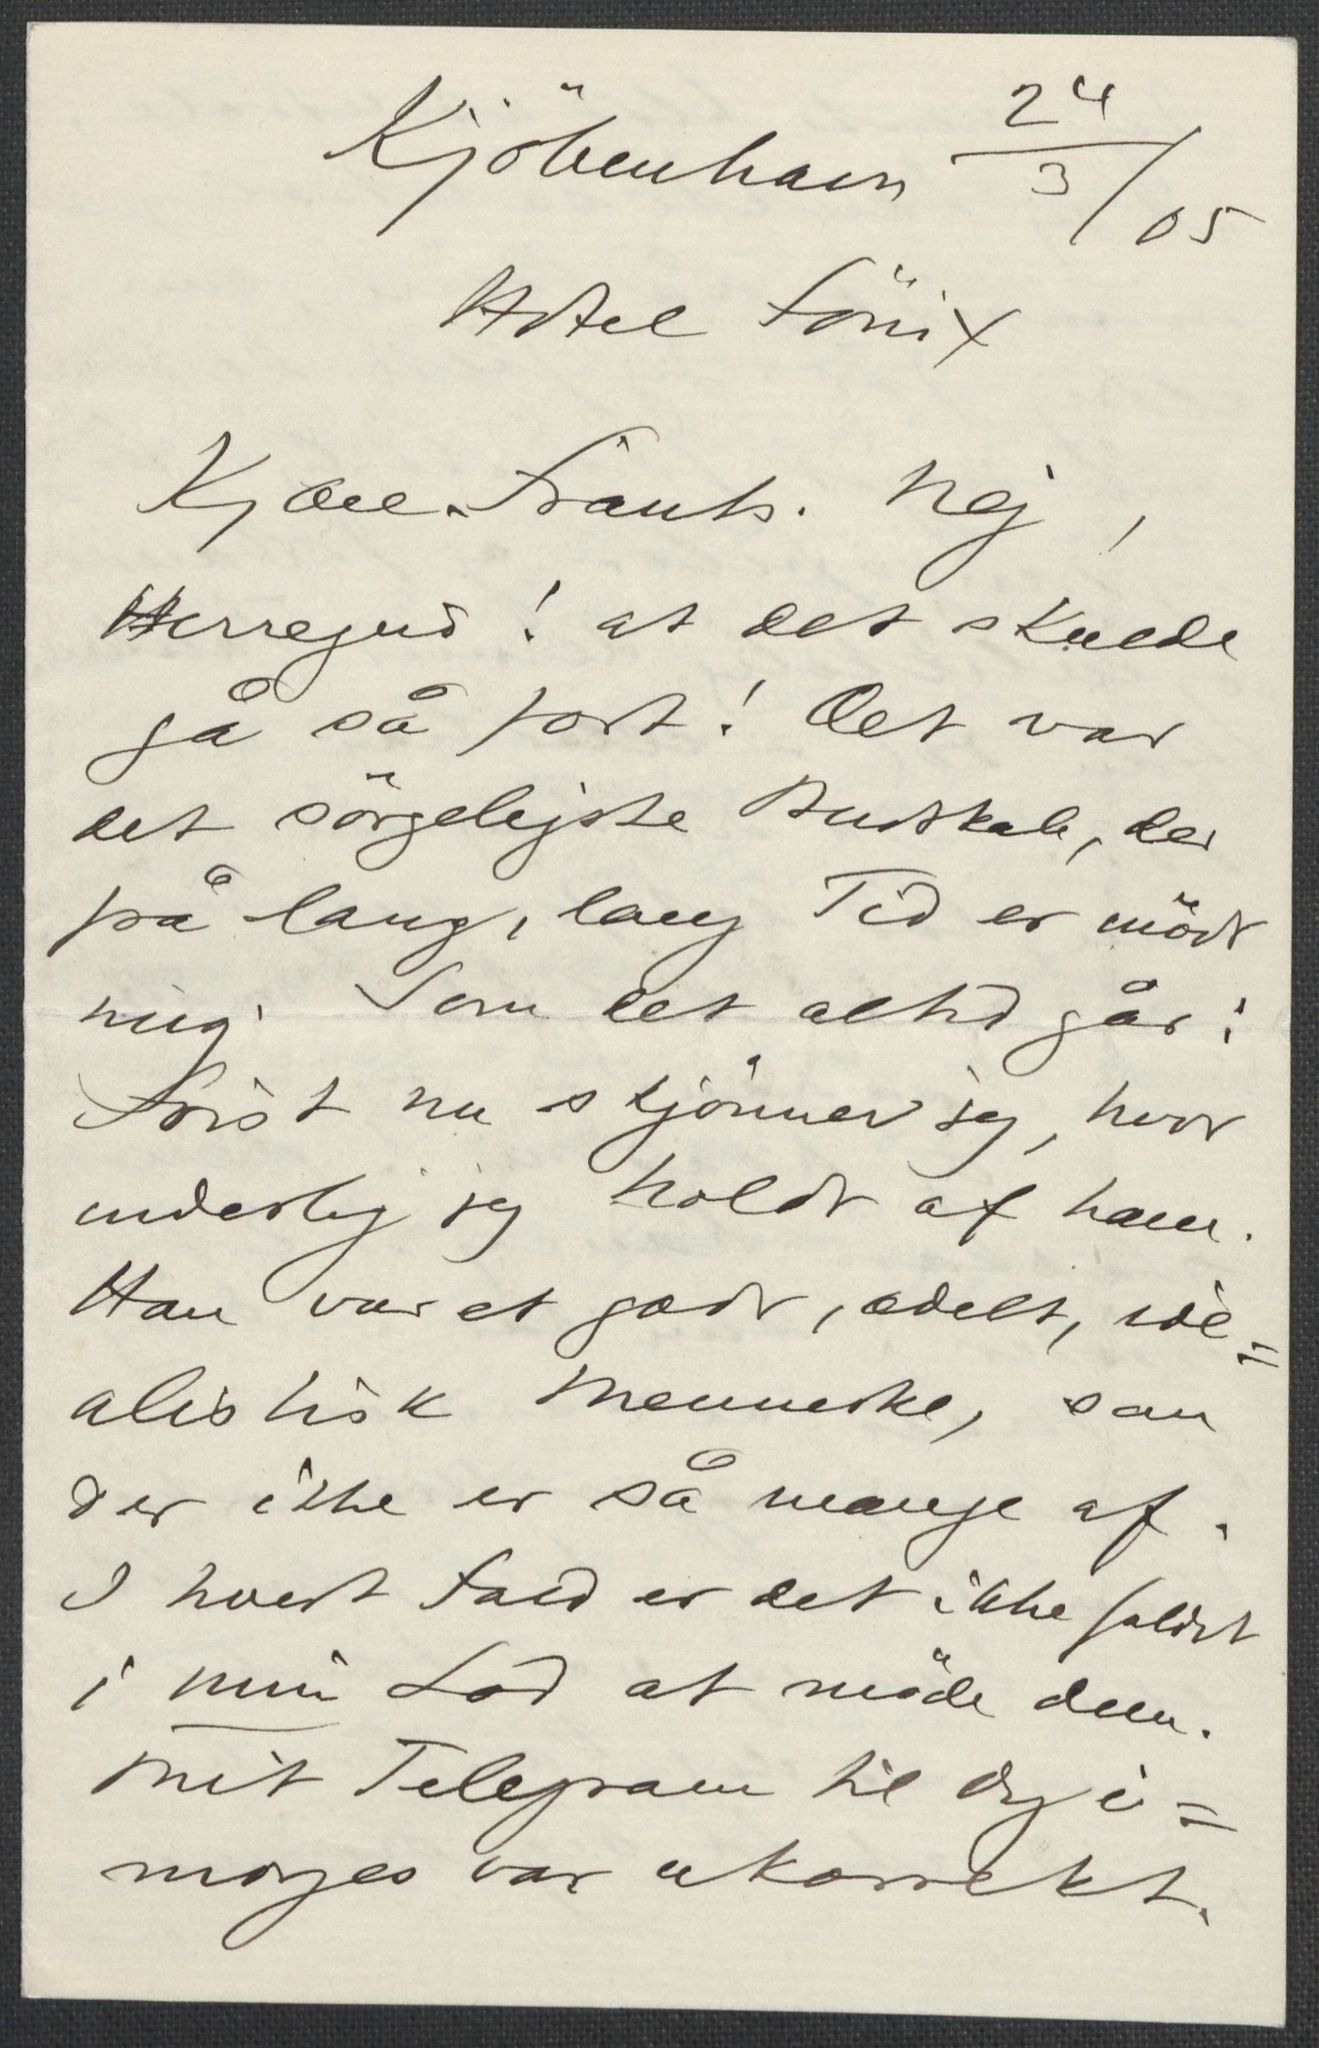 Kjöbenhavn 24/3/05
Hotel Fönix
Kjære Frants. Nej,
Herregud! at det skulde
gå så fort! Det var
det sörgeligste Budskab, der
på lang, lang Tid er mödt
mig. Som det altid går:
Först nu skjönner jeg, hvor
inderlig jeg holdt af ham.
Han var et godt, ædelt, ide=
alistisk Menneske, som
der ikke er så mange af.
I hvert Fald er det ikke faldt
i min Lod at möde dem.
Mit Telegram til dig i=
morges var ukorrekt.